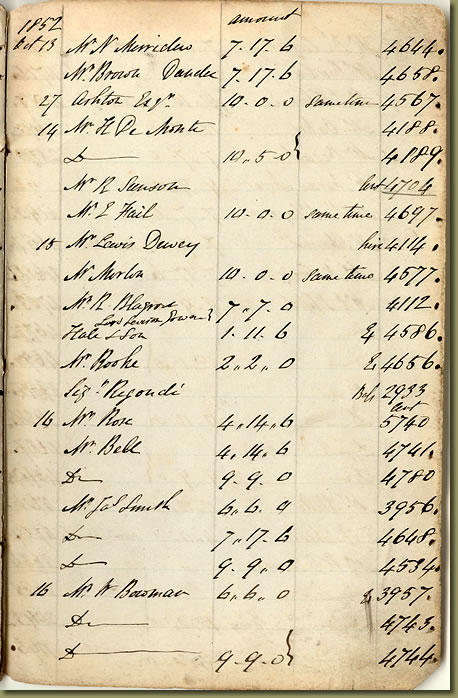 1852 amount
Oct 13 Mr N Merriden 7.17.6 4644.
Mr Brown Dundee 7.17.6 4658.
27 Ashton Esqr 10.0.0 Sametime 4567.
14 Mr H De Monte 4188.
Do 10.5.0} 4189.
Mr R Sanson 4704
Mr E Hail 10.0.0 same time 4697.
15 Mr Lewis Dewey hire 414.
10.0.0 Same time 4577.
Mr R Blagrove 7.7.0 4112.
Hale & Son 1.11.6 4586.
Mr Rooke 2.2.0 4656.
Sigr Regondi 2933
16 Mr Rose 4.14.6 5740
Mr Bell 4.14.6 4741.
Do 9.9.0 4780
Mr Jas Smith 6.6.0 3956.
Do 7.17.6 4648.
Do 9.9.0 4534
16 Mr W Bowman 6.6.0 3957.
Do 4743.
Do 9.9.0} 4744.